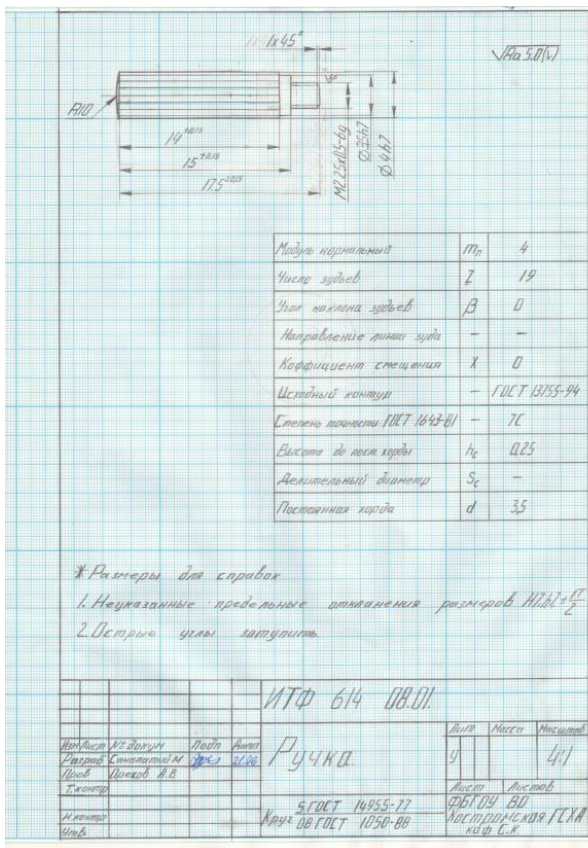 1x45°
√Ra 5.0(√)
R10
14±0,15
15±0,15
17.5±0,15
M2.25x0.5-6g
Ø3.5h7
Ø4h7
Модуль нормальный mn 4
Число зубьев Z 19
Угол наклона зубьев β 0
Направление линии зуба - -
Коффициент смещения X 0
Исходный контур - ГОСТ 13755-94
Степень точности ГОСТ 1643-81 - 7С
Высота до пост. хорды hc 0,25
Делительный диаметр Sc -
Постоянная хорда d 3,5
* Размеры для справок
1. Неуказанные предельные отклонения размеров H7,h7±IT/2
2. Острые углы затупить
ИТФ 614 08.01.
Изм Лист № докум Подп Дата
Разраб
Пров Орехов А.В
Т.контр
Н.контр
Утв
Ручка.
Лит Масса Масштаб
у 4:1
Лист Листов
Круг 5 ГОСТ 14955-77
08 ГОСТ 1050-88
ФБГОУ ВО
Костромская ГСХА
каф С.К.